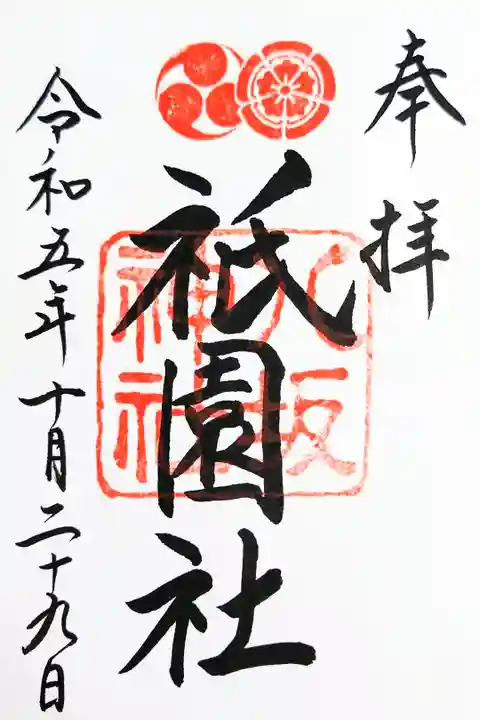 奉拝
祇園社
八坂
神社
令和五年十月二十九日